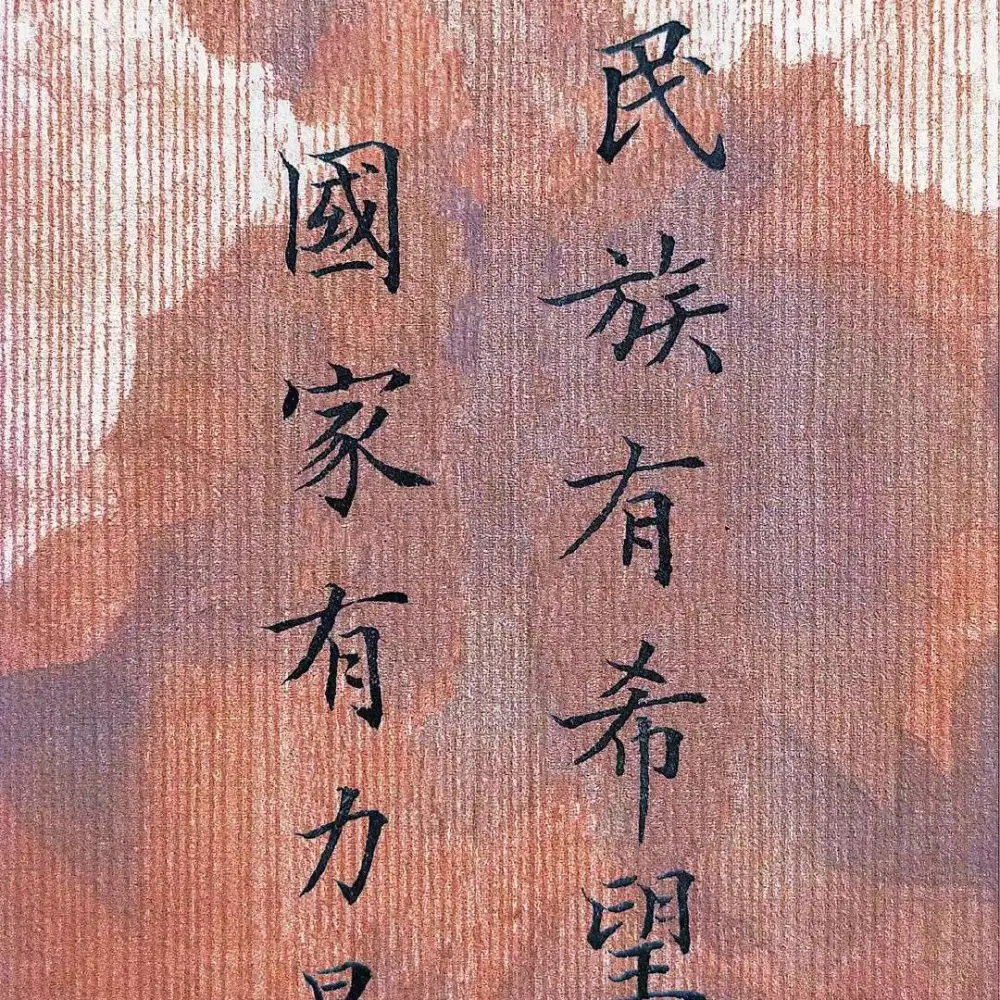 民族有希望
國家有力